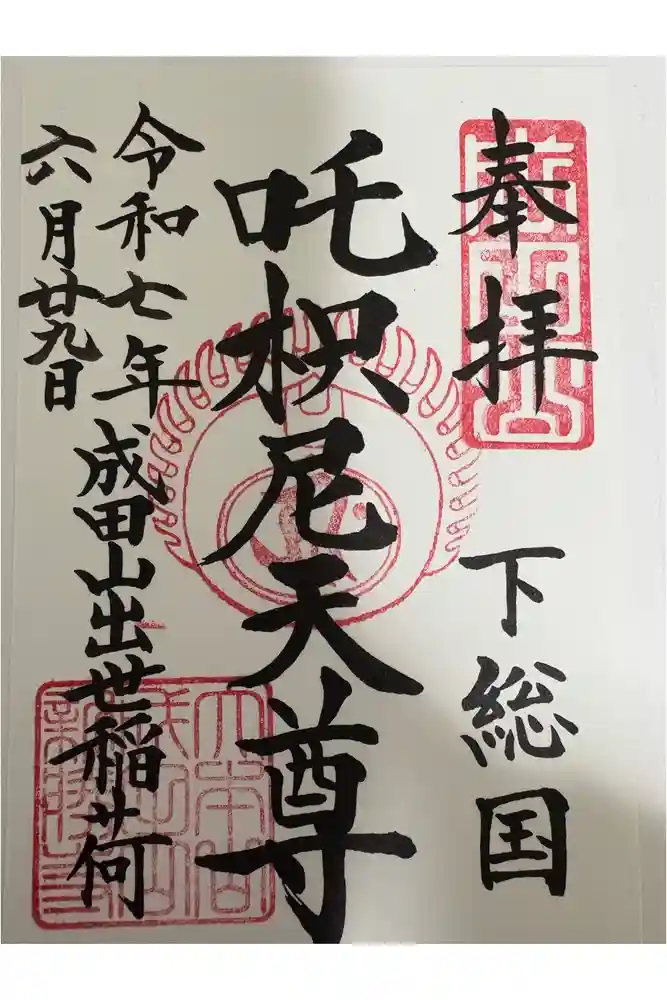 奉拝
下総国
吒枳尼天尊
令和七年
六月廿九日
成田山出世稲荷